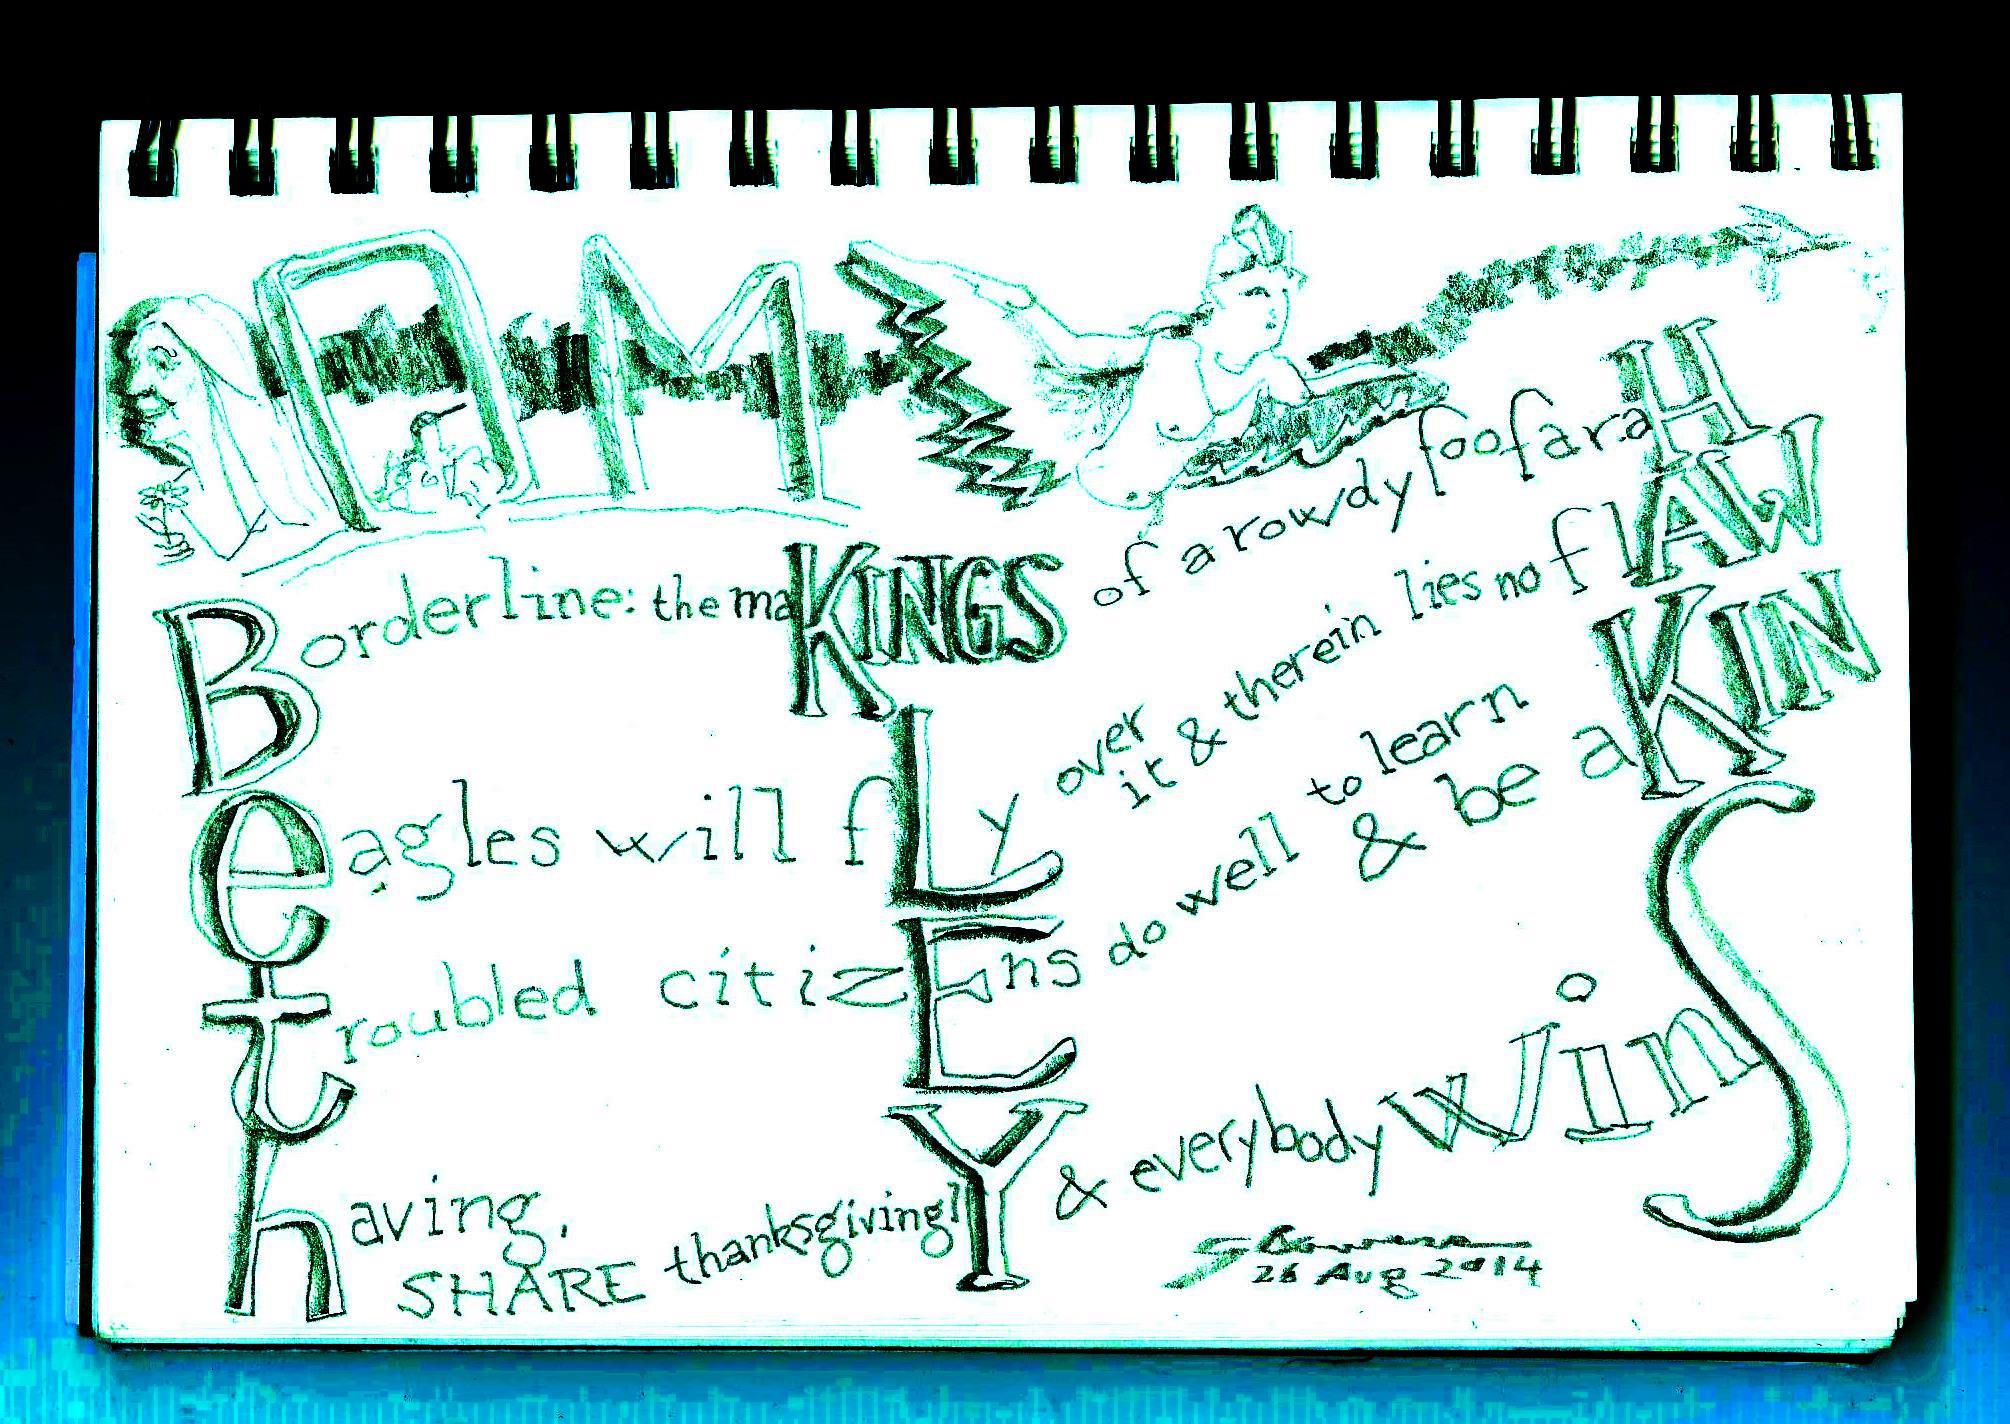 OM
Borderline: the maKINGS of a rowdy foofaraH
eagles will fLy over it & therein lies no flAW
troubled citizEns do well to learn & be aKIN
having, SHARE thanksgivinglY & everybody winS
26 Aug 2014